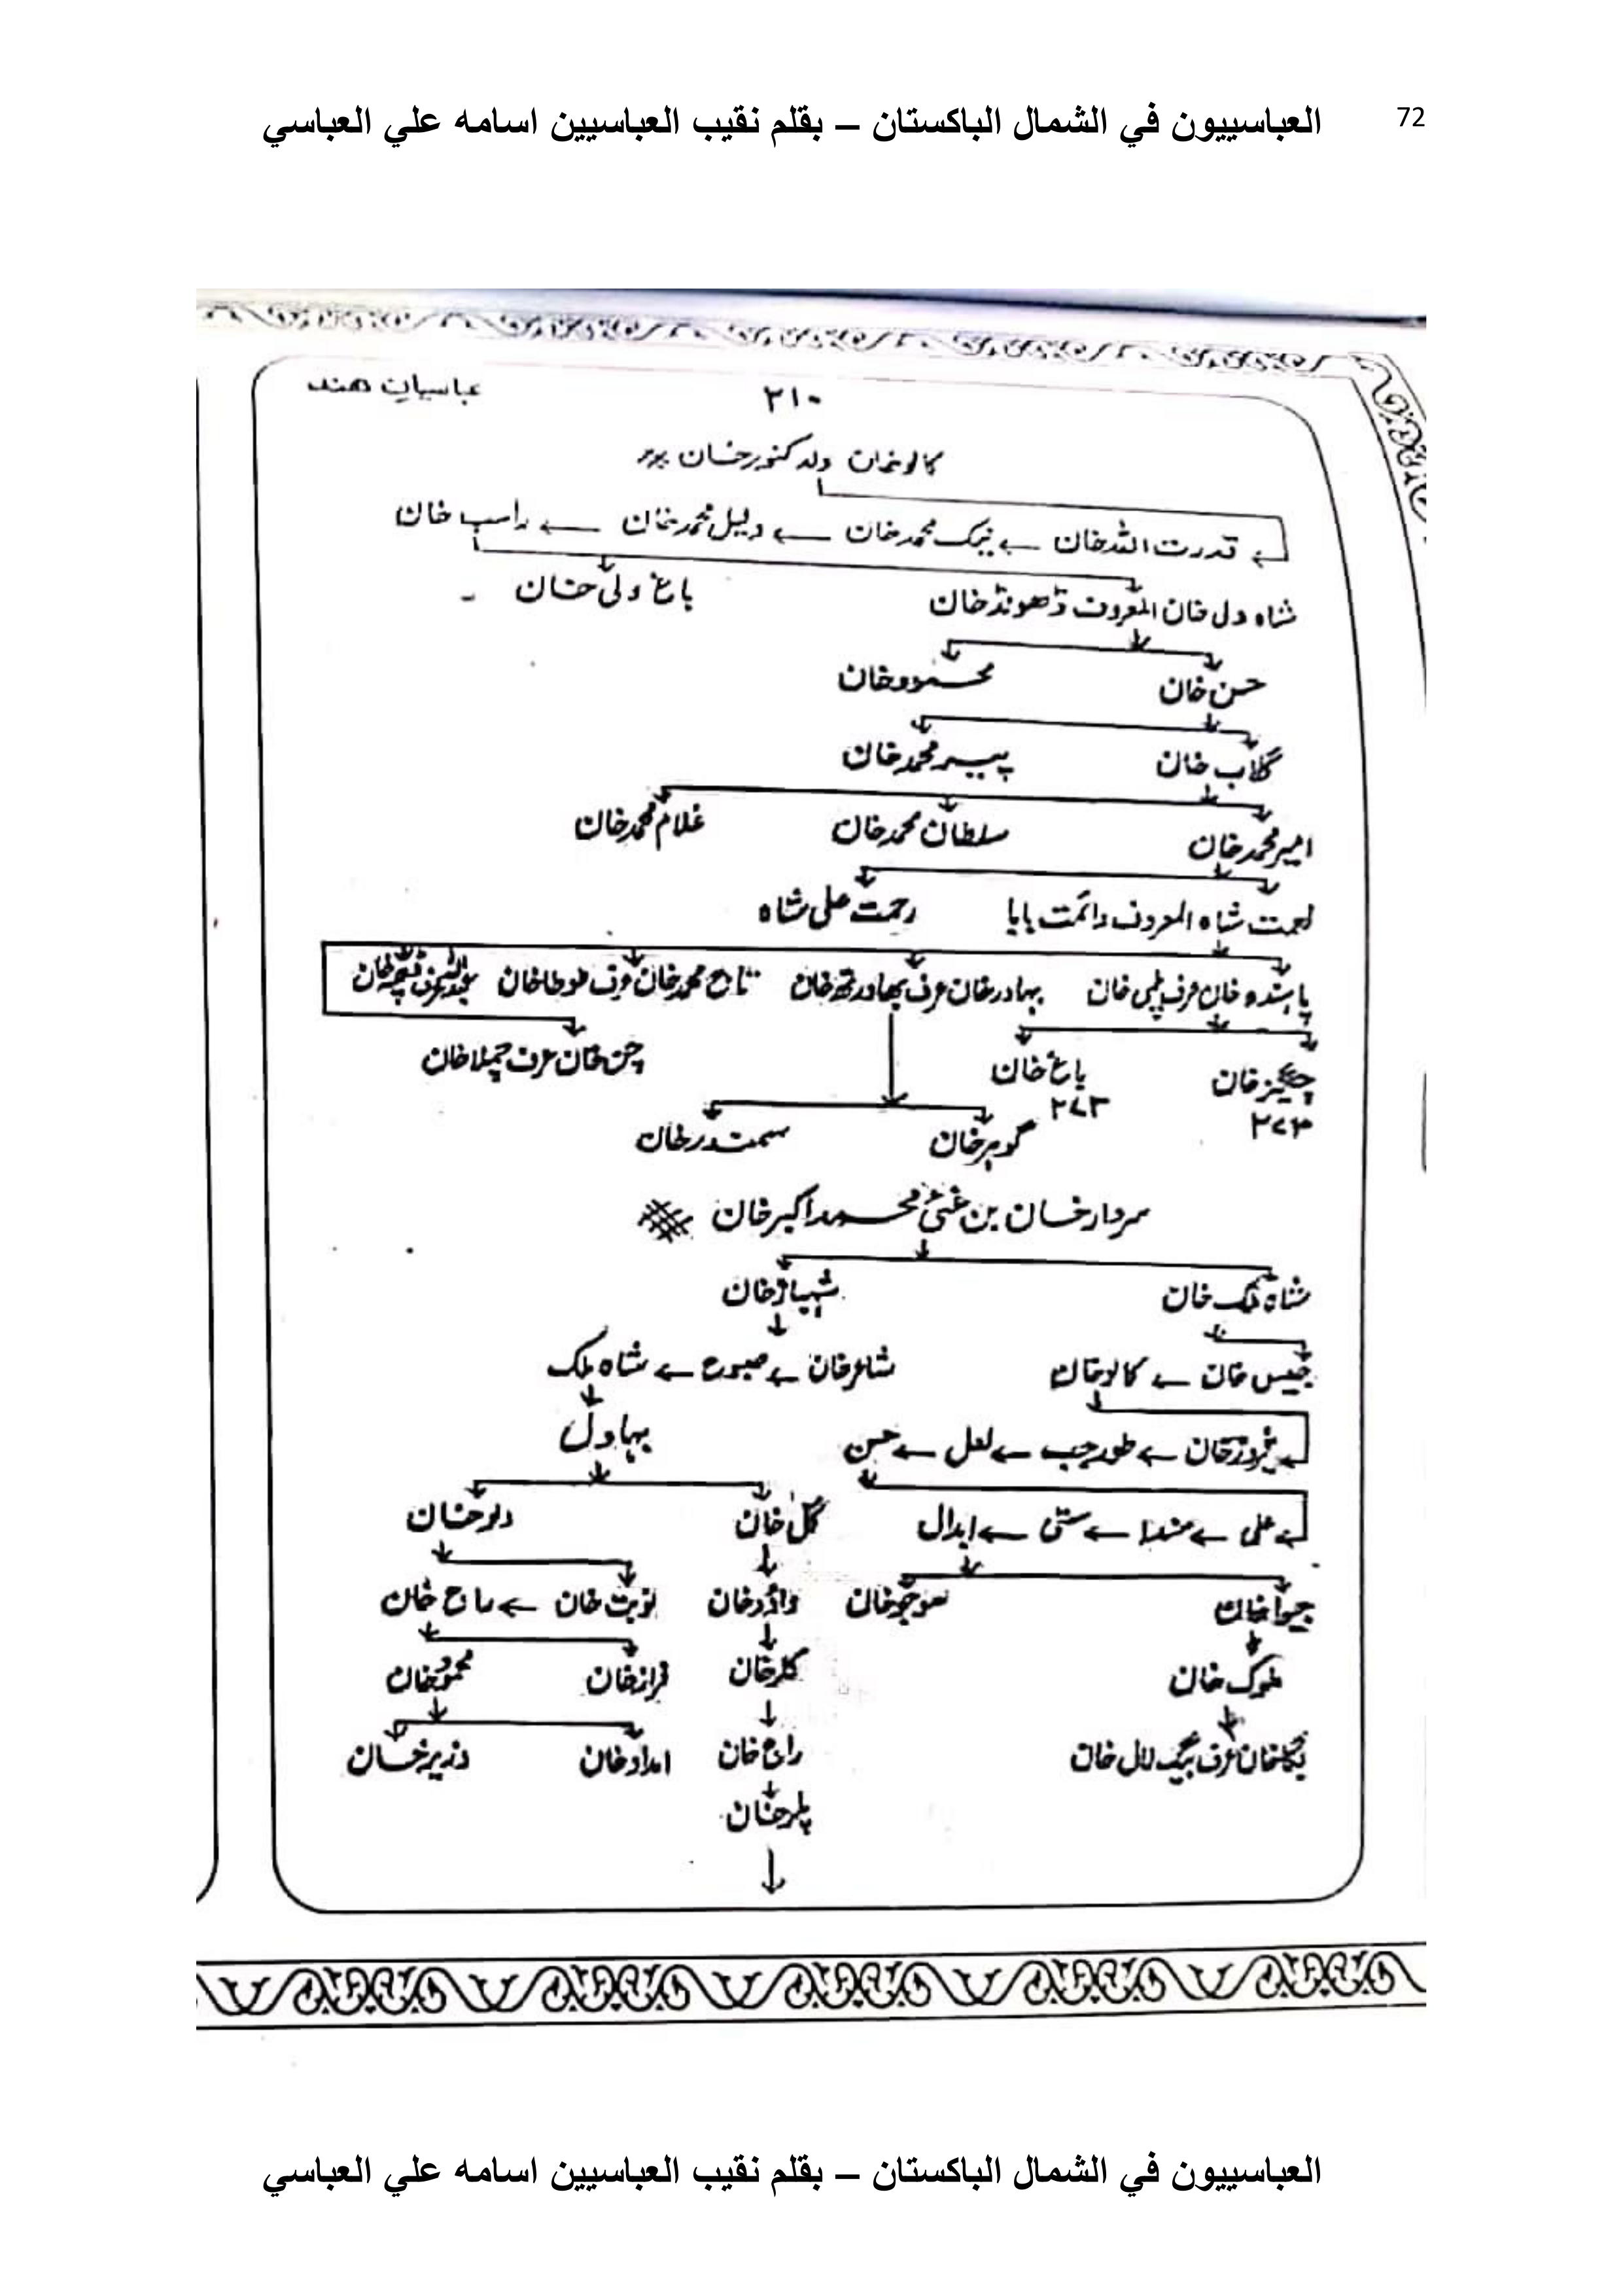 72
العباسييون في الشمال الباكستان – بقلم نقيب العباسيين اسامه علي العباسي
عباسیانِ هند
۲۱۰
کالوخان ولد کنورخان
قدرت اللہ خان ← نیک محمدخان ← دلیل محمدخان ← راسب خان
شاہ ولی خان المعروف ڈھونڈخان باغ ولی خان
حسن خان محمودخان
گلاب خان پیر محمدخان
امیرمحمدخان سلطان محمدخان غلام محمدخان
نعمت شاہ المعروف دائمت بابا رحمت علی شاہ
پائندہ خان عرف بہادرخان عرف تاج محمدخان عرف طوطاخان
چنگیزخان باغ خان چن خان عرف چملاخان
۲۷۳ ۲۷۳
گوہرخان سمندرخان
سردارخان بن غنی محمداکبرخان
شاہ ملک خان شہبازخان
کالوخان شاعرخان ← ← شاہ ملک
فیروزخان ← ← لعل ← حسن بہادل
علی ← مندا ← ستی ← ابدال گل خان دلوخان
جیواخان موجوخان داؤدخان نوبت خان ←
ملوک خان گلرخان فرازخان محمودخان
عرف بیگ لال خان راج خان امدادخان وزیرخان
العباسييون في الشمال الباكستان – بقلم نقيب العباسيين اسامه علي العباسي